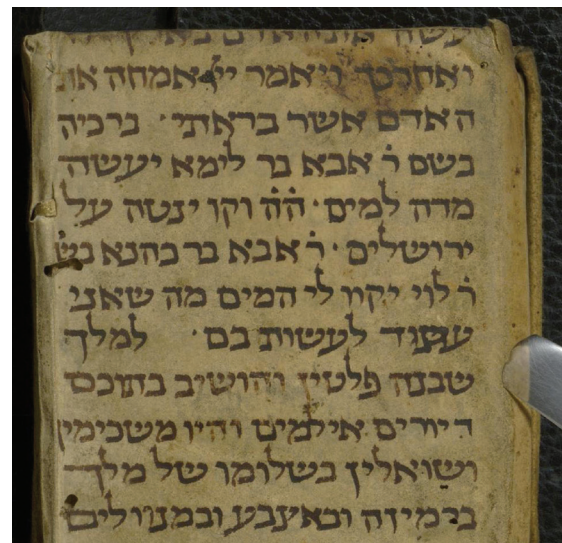 ואחר כך ויאמר ייי אמחה את
האדם אשר בראתי · ברכיה
בשם ר̇ אבא בר לימא יעשה
מדה למים · ה̇ה̇ וקו ינטה על
ירושלים · ר̇ אבא בר כהנא בש
ר̇ לוי יקוו לי המים מה שאני
עתיד לעשות בם · למלך
שבנה פלטין והושיב בתוכם
דיורים אילמים והיו משכימין
ושואלין בשלומו של מלך
ברמיזה ובאצבע ובמנוולים